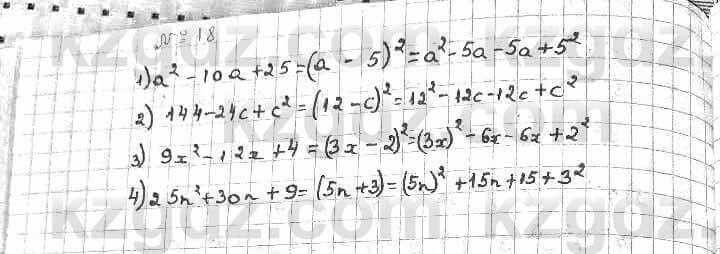 № 18
1) a² - 10a + 25 = (a - 5)² = a² - 5a - 5a + 5²
2) 144 - 24c + c² = (12 - c)² = 12² - 12c - 12c + c²
3) 9x² - 12x + 4 = (3x - 2)² = (3x)² - 6x - 6x + 2²
4) 25n² + 30n + 9 = (5n + 3) = (5n)² + 15n + 15 + 3²
kzgdz.com